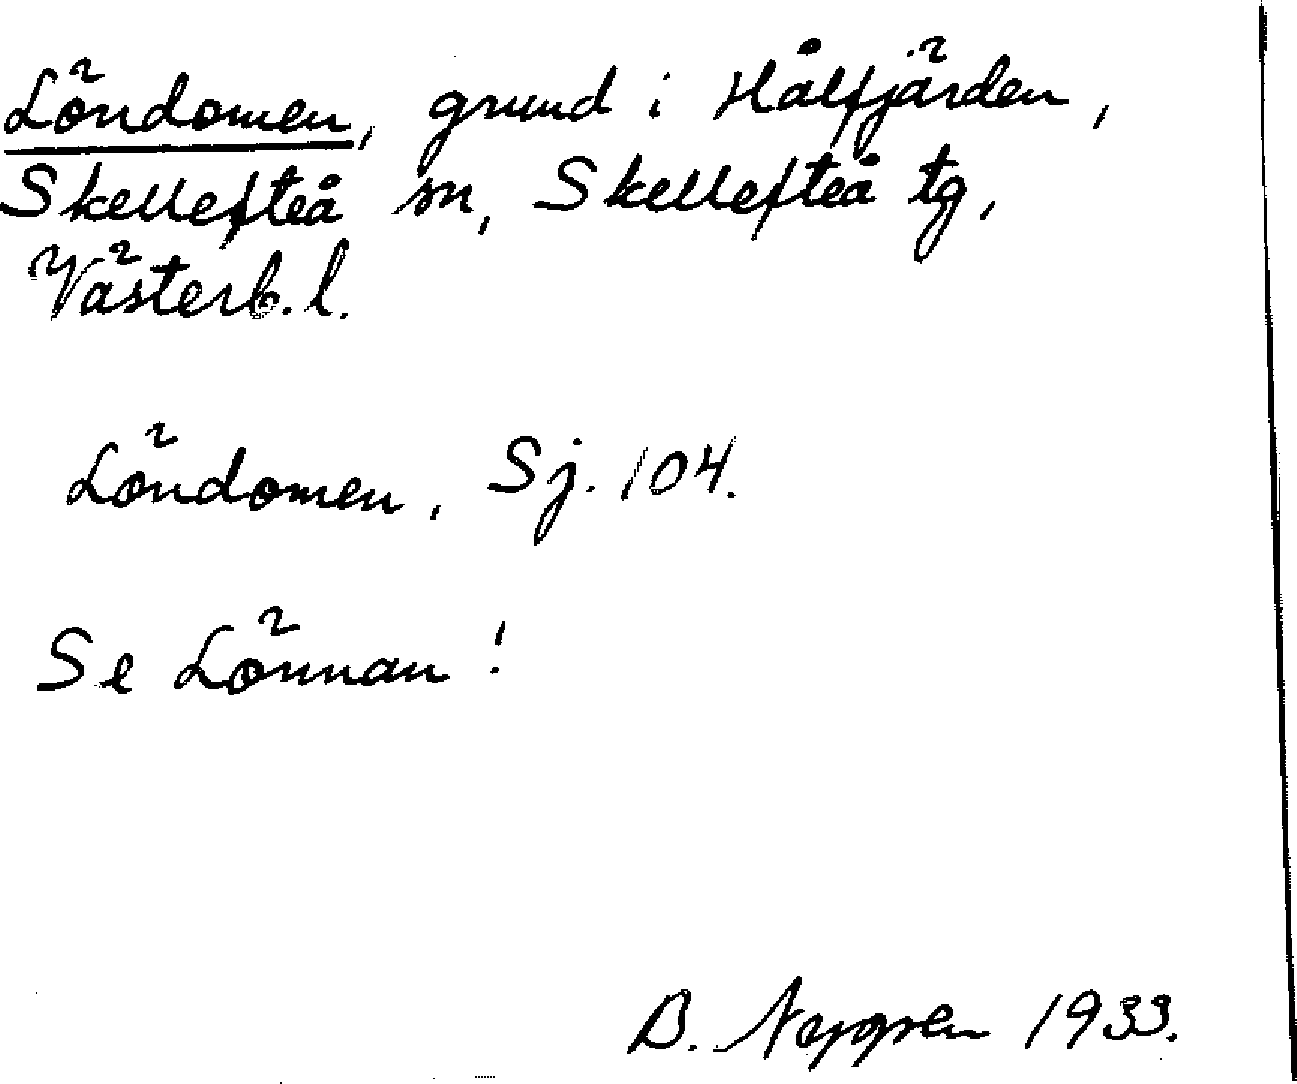 Löndomen, grund i Hålfjärden,
Skellefteå sn, Skellefteå tg,
Västerb. l.
Löndomen, Sj. 104.
Se Lönnan!
B. Nygren 1933.